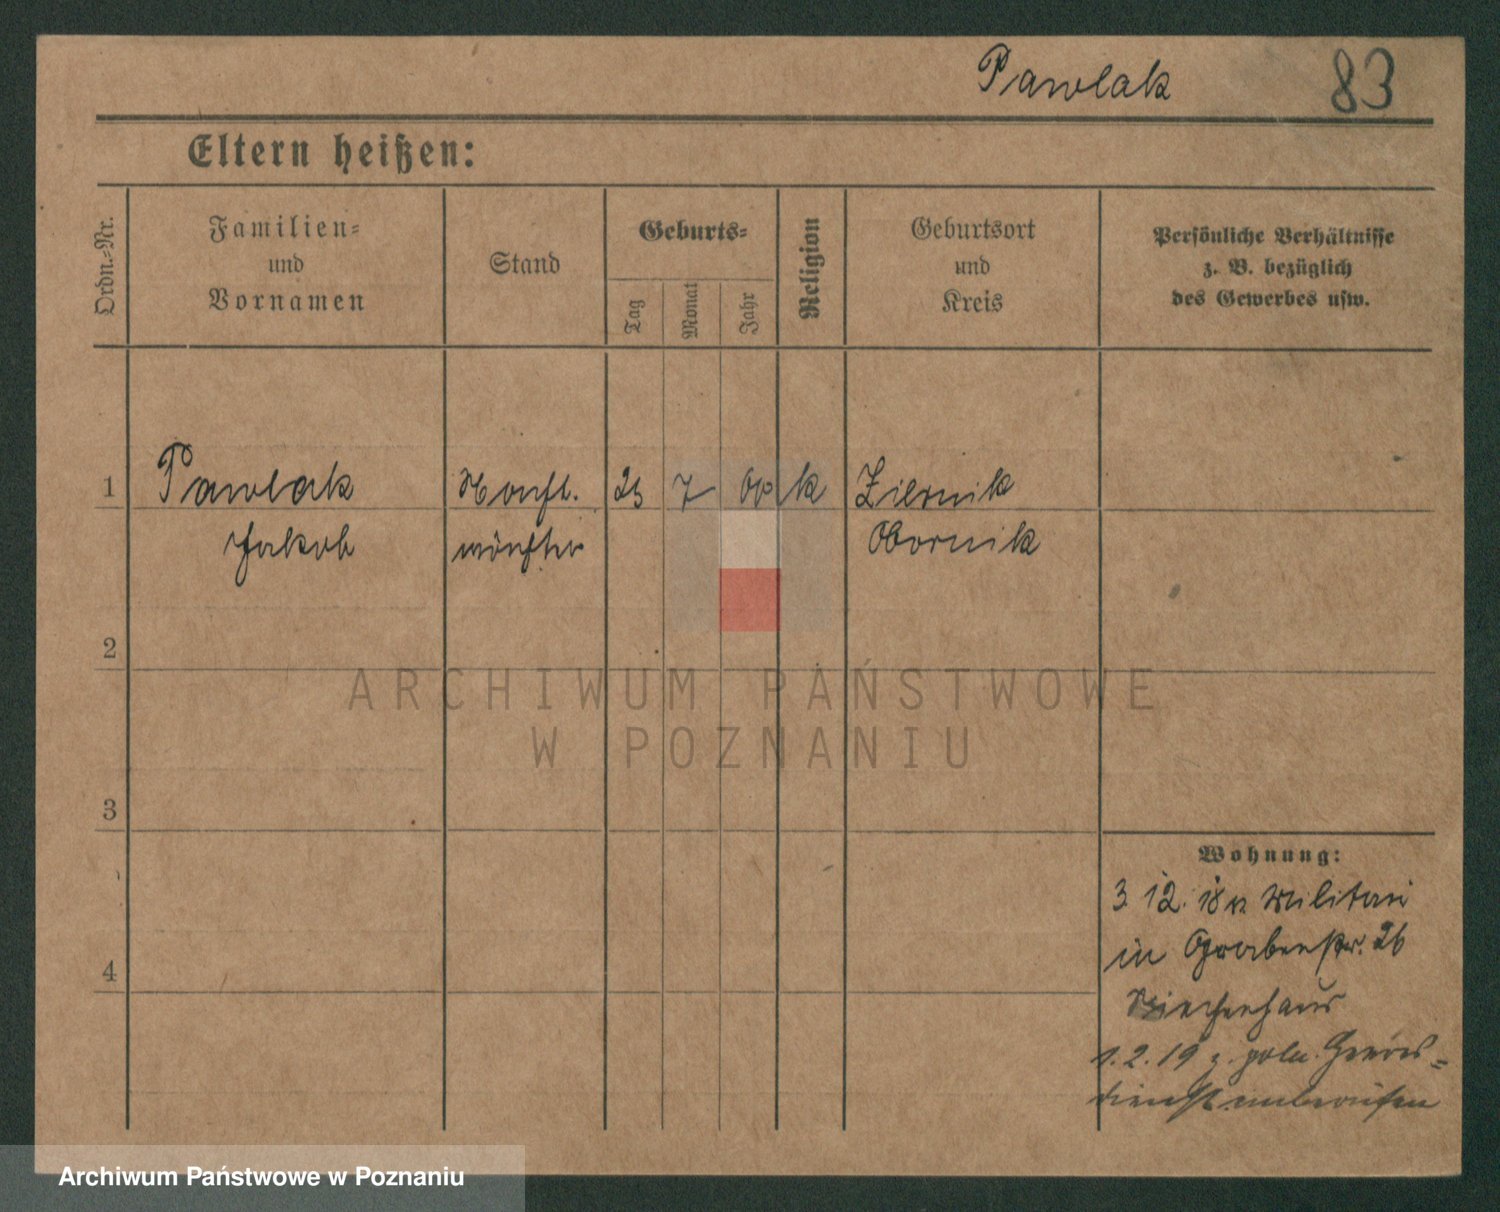 Pawlak 83
Eltern heißen:
Ordn.-Nr.
Familien-
und
Vornamen
Stand
Geburts-
Tag
Monat
Jahr
Religion
Geburtsort
und
Kreis
Persönliche Verhältnisse
z. B. bezüglich
des Gewerbes usw.
1 Pawlak 7 00 k Ziernik
Jakob Obornik
2
3
4
ARCHIWUM PAŃSTWOWE
W POZNANIU
Wohnung:
3 12. 18 Militär
in Grabenstr. 26
Siechenhaus
1.2.19 z. poln. Heeres-
dienst einberufen
Archiwum Państwowe w Poznaniu